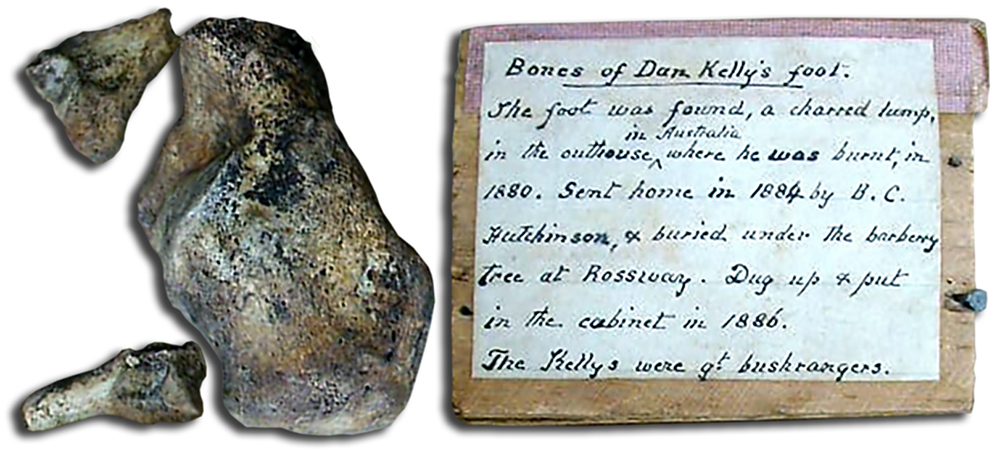 Bones of Dan Kelly's foot.
The foot was found, a charred lump,
in Australia
in the outhouse, where he was burnt, in
1880. Sent home in 1884 by B. C.
Hutchinson, & buried under the barberry
tree at Rossway. Dug up & put
in the cabinet in 1886.
The Kellys were gt bushrangers.